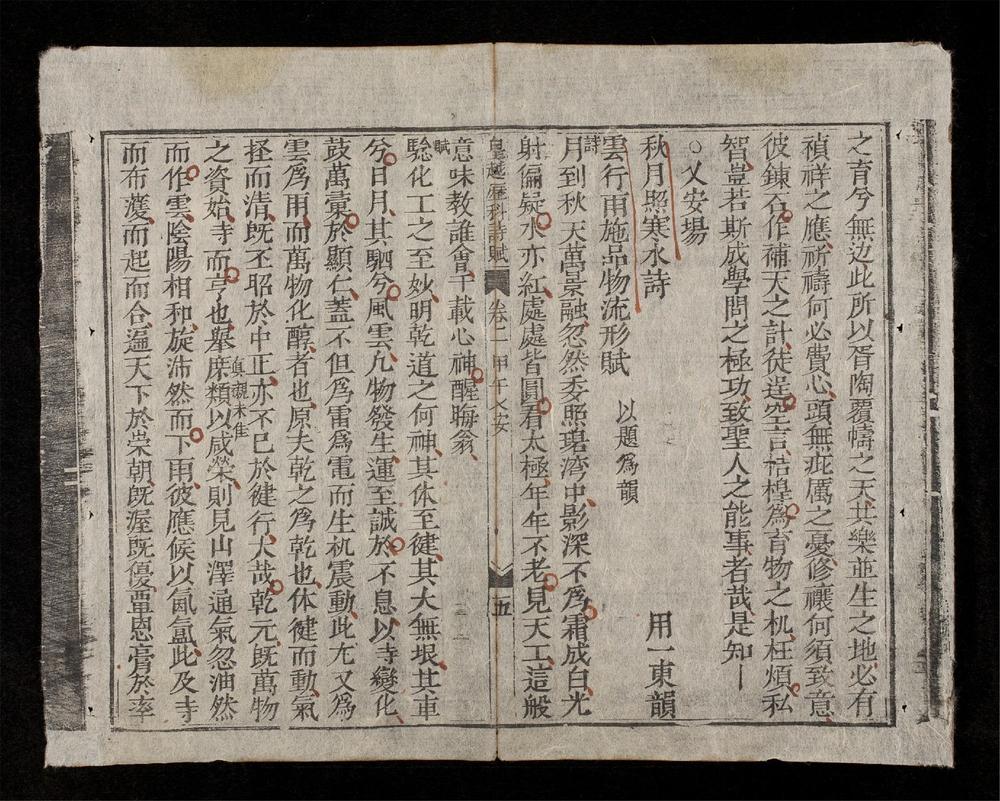 之育兮無边此所以胥陶覆幬之天共樂並生之地必有
禎祥之應祈禱何必費心頭無疵厲之憂修禳何須致意
彼鍊石作補天之計徒逞空言桔橰為育物之机枉煩私
智豈若斯成學問之極功致聖人之能事者哉是知〡
○乂安場
秋月照寒水詩 用一東韻
雲行雨施品物流形賦 以題為韻
詩
月到秋天萬景融忽然委照珺湾中影深不為霜成白光
射偏疑水亦紅處處皆圓看太極年年不老見天工這般
皇越歷科詩賦 卷二 甲午乂安 五
意味教誰會千載心神醒晦翁
賦
騐化工之至妙明乾道之何神其体至健其大無垠其車
兮日月其駟兮風雲九物發生運至誠於不息以寺變化
鼓萬彙於顯仁盖不但為雷為電而生机震動此尢又為
雲為雨而萬物化醇者也原夫乾之為乾也体健而動氣
拯而清既丕昭於中正亦不已於健行大哉乾元既萬物
貞觀未隹
之資始寺而亨也舉庶類以咸榮則見山澤通氣忽油然
而作雲陰陽相和旋沛然而下雨彼應候以氤氳此及寺
而布濩而起而合遍天下於祟朝既渥既優覃恩膏於率